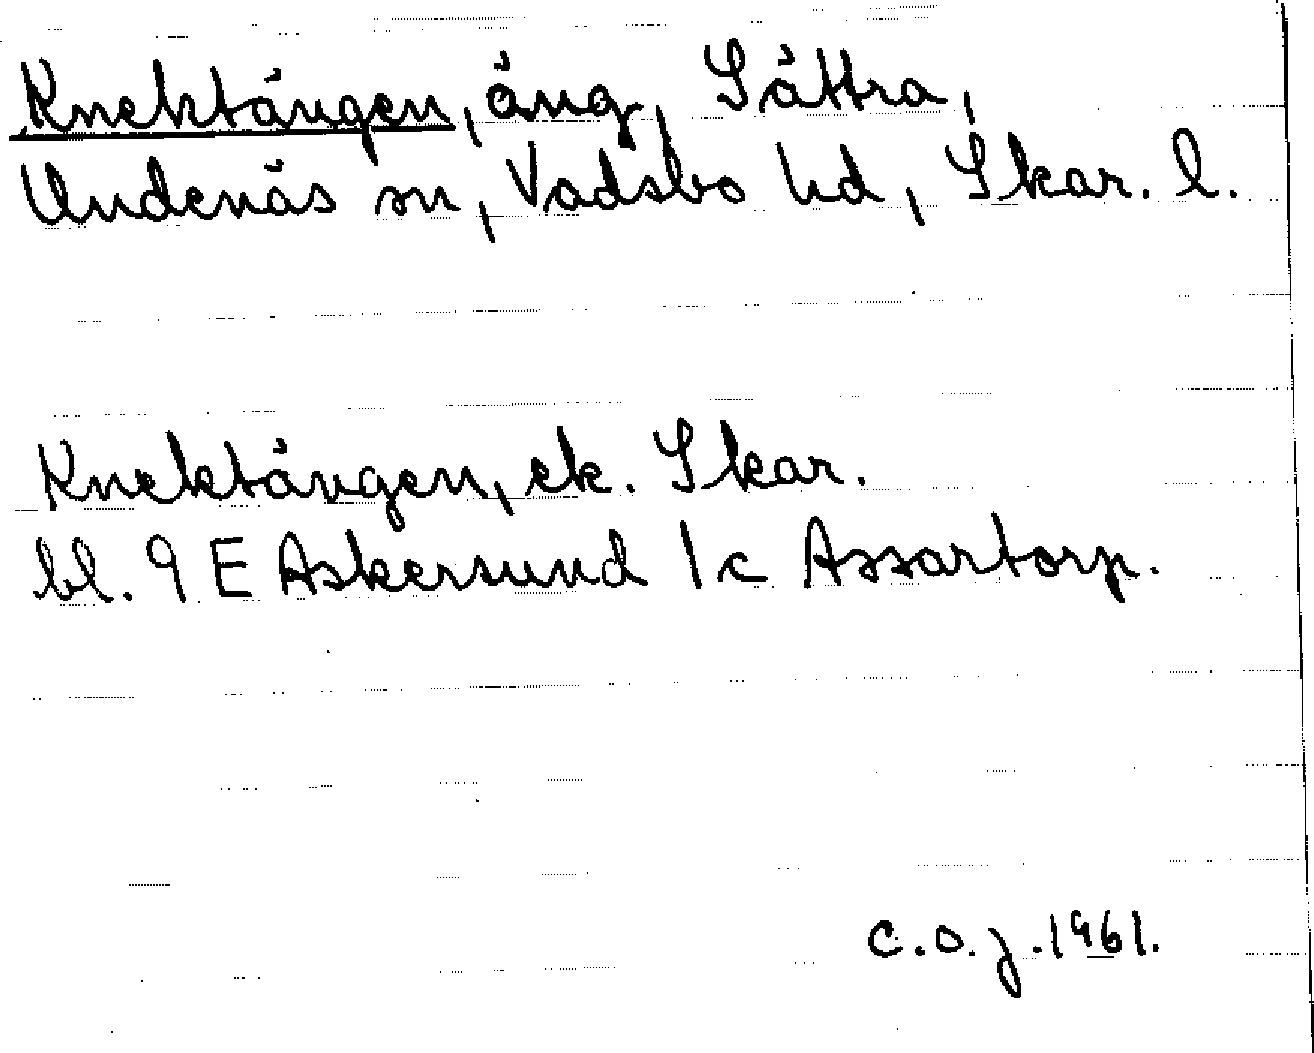 Knektängen, äng, Sätra,
Undenäs sn, Vadsbo hd, Skar. l.
Knektängen, ek. Skar.
bl. 9 E Askersund 1c Assartorp.
C.O.J. 1961.